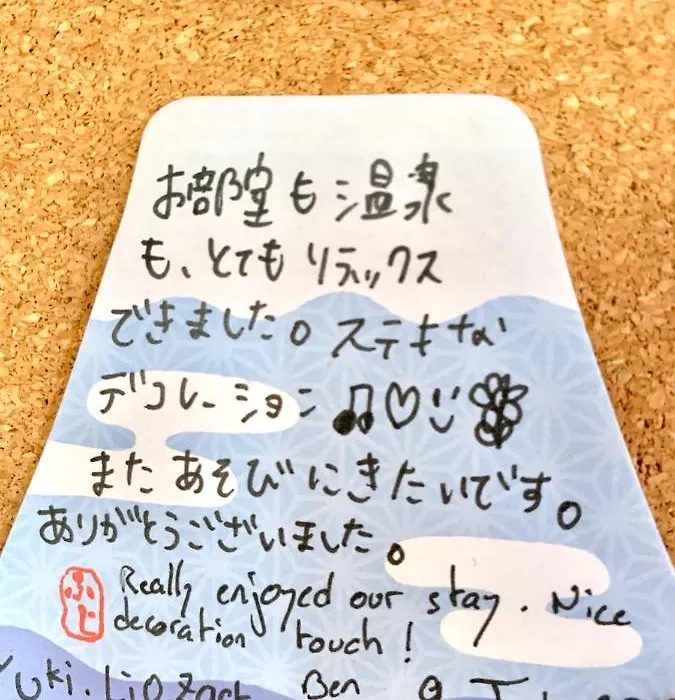 お部屋も温泉
も、とてもリラックス
できました。ステキな
デコレーション♫♡
またあそびにきたいです。
ありがとうございました。
ふじ
Really enjoyed our stay. Nice
decoration touch!
Yuki. Ben